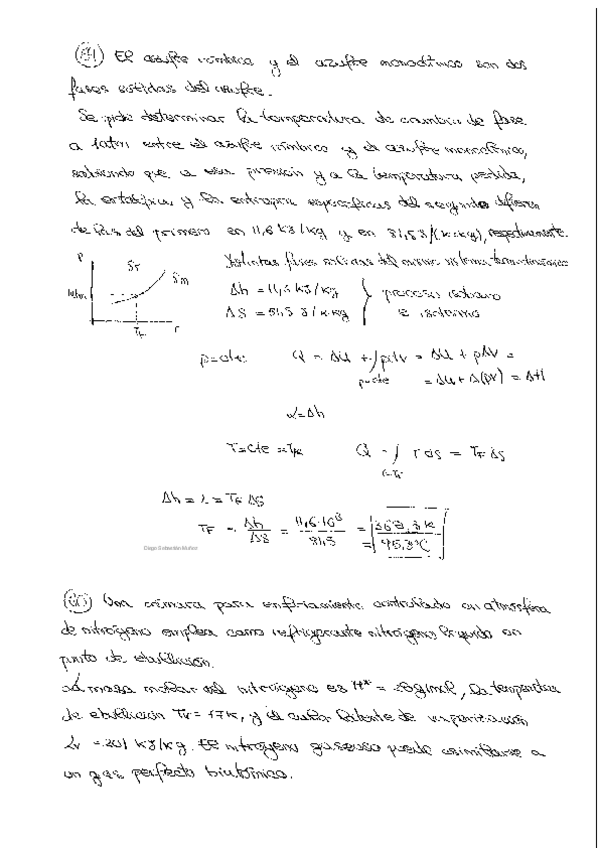 El azufre rómbico y el azufre monoclínico son dos
fases sólidas del azufre.
Se pide determinar la temperatura de cambio de fase
a 1atm entre el azufre rómbico y el azufre monoclínico,
sabiendo que, a esa presión y a la temperatura pedida,
la entalpía y la entropía específicas del segundo difieren
de las del primero en 11,6 kJ/kg y en 31,5 J/(K·kg), respectivamente.
P
Sr
Sm
1atm
TF T
Distintas fases sólidas del mismo sistema termodinámico
Δh = 11,6 kJ/kg
ΔS = 31,5 J/K·kg
} proceso isobaro
e isotermo
p=cte: Q = ΔU + ∫pdV = ΔU + pΔV =
p=cte = ΔU + Δ(pV) = ΔH
α=Δh
T=cte =TF Q = ∫ T ds = TF ΔS
Δh = α = TF ΔS
TF = Δh/ΔS = 11,6·10³/31,5 = 368,3 K
= 95,3ºC
Diego Sebastián Muñoz
Una cámara para enfriamiento controlado en atmósfera
de nitrógeno emplea como refrigerante nitrógeno líquido en
punto de ebullición.
La masa molar del nitrógeno es M* = 28g/mol, la temperatura
de ebullición Tv = 77K, y el calor latente de vaporización
Lv = 201 kJ/kg. El nitrógeno gaseoso puede asimilarse a
un gas perfecto biatómico.